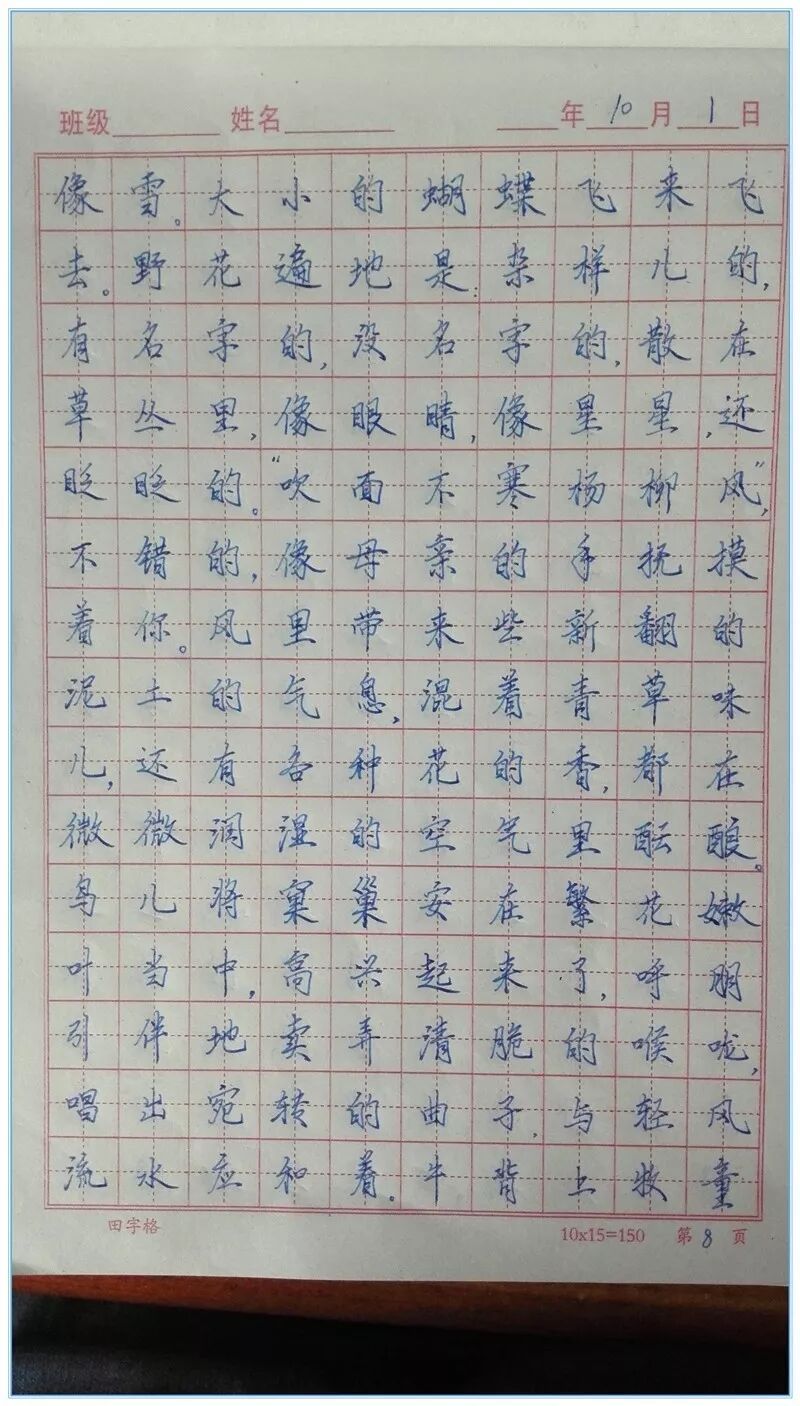 班级 姓名 年 10 月 1 日
像雪。大小的蝴蝶飞来飞
去。野花遍地是:杂样儿的,
有名字的,没名字的,散在
草丛里,像眼睛,像星星,还
眨眨的。“吹面不寒杨柳风”,
不错的,像母亲的手抚摸
着你。风里带来些新翻的
泥土的气息,混着青草味
儿,还有各种花的香,都在
微微润湿的空气里酝酿。
鸟儿将窠巢安在繁花嫩
叶当中,高兴起来了,呼朋
引伴地卖弄清脆的喉咙,
唱出宛转的曲子,与轻风
流水应和着。牛背上牧童
田字格 10x15=150 第 8 页